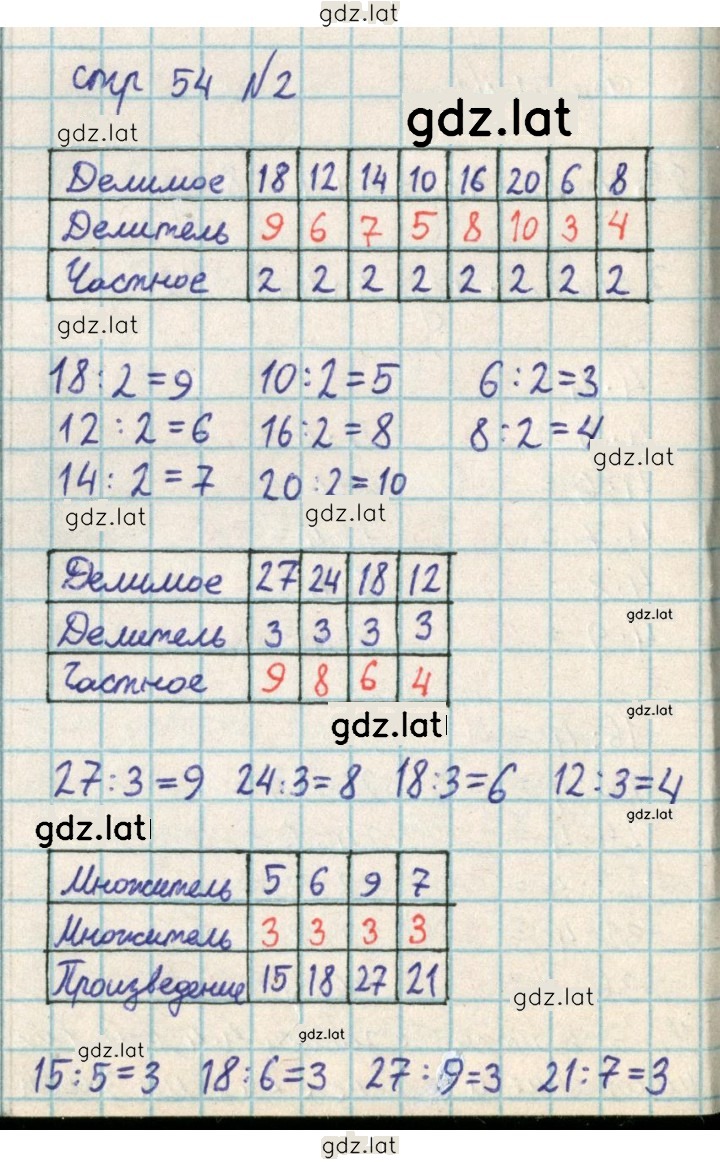 gdz.lat
стр 54 №2
gdz.lat
gdz.lat
Делимое 18 12 14 10 16 20 6 8
Делитель 9 6 7 5 8 10 3 4
Частное 2 2 2 2 2 2 2 2
gdz.lat
18:2=9 10:2=5 6:2=3
12:2=6 16:2=8 8:2=4
gdz.lat
14:2=7 20:2=10
gdz.lat gdz.lat
Делимое 27 24 18 12
Делитель 3 3 3 3
gdz.lat
Частное 9 8 6 4
gdz.lat
gdz.lat
27:3=9 24:3=8 18:3=6 12:3=4
gdz.lat
gdz.lat
Множитель 5 6 9 7
Множитель 3 3 3 3
Произведение 15 18 27 21
gdz.lat
gdz.lat
gdz.lat
15:5=3 18:6=3 27:9=3 21:7=3
gdz.lat